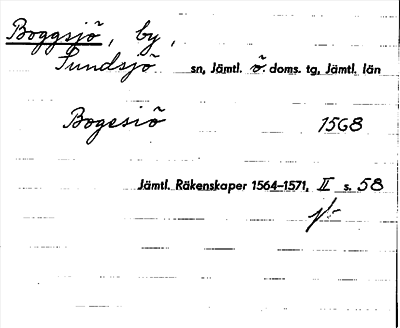 Boggsjö, by,
Sundsjö sn, Jämtl. ö. doms. tg, Jämtl. län
Bogesiö 1568
Jämtl. Räkenskaper 1564–1571, II s. 58